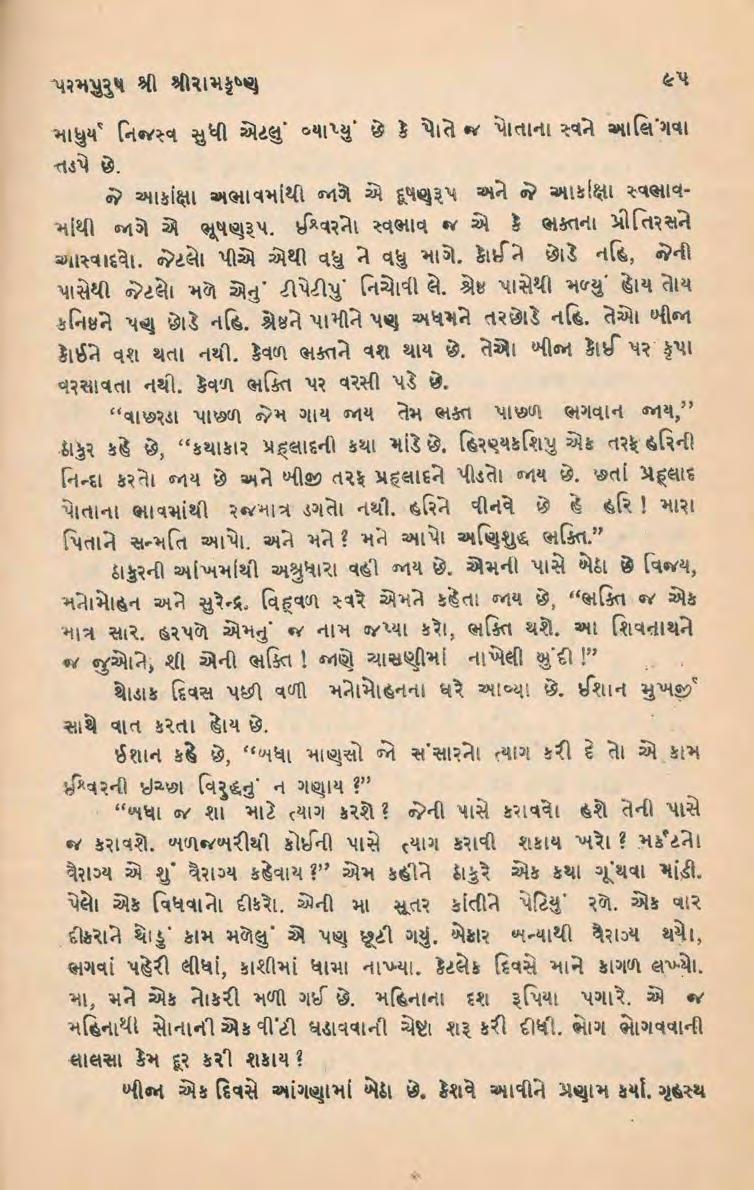 પરમપુરુષ શ્રી શ્રીરામકૃષ્ણ ૯૫
માધુર્ય નિજસ્વ સુધી એટલું વ્યાપ્યું છે કે પોતે જ પોતાના સ્વને આલિંગવા
તડપે છે.
જે આકાંક્ષા અભાવમાંથી જાગે એ દૂષણરૂપ અને જે આકાંક્ષા સ્વભાવ-
માંથી જાગે એ ભૂષણરૂપ. ઈશ્વરનો સ્વભાવ જ એ કે ભક્તના પ્રીતિરસને
આસ્વાદવો. જેટલો પીએ એથી વધુ ને વધુ માગે. કોઈને છોડે નહિ, જેની
પાસેથી જેટલો મળે એનું ટીપેટીપું નિચોવી લે. શ્રેષ્ઠ પાસેથી મળ્યું હોય તોય
કનિષ્ઠને પણ છોડે નહિ. શ્રેષ્ઠને પામીને પણ અધમને તરછોડે નહિ. તેઓ બીજા
કોઈને વશ થતા નથી. કેવળ ભક્તને વશ થાય છે. તેઓ બીજા કોઈ પર કૃપા
વરસાવતા નથી. કેવળ ભક્તિ પર વરસી પડે છે.
“વાછરડા પાછળ જેમ ગાય જાય તેમ ભક્ત પાછળ ભગવાન જાય,”
ઠાકુર કહે છે, “કથાકાર પ્રહ્લાદની કથા માંડે છે. હિરણ્યકશિપુ એક તરફ હરિની
નિન્દા કરતો જાય છે અને બીજી તરફ પ્રહ્લાદને પીડતો જાય છે. છતાં પ્રહ્લાદ
પોતાના ભાવમાંથી રજમાત્ર ડગતો નથી. હરિને વીનવે છે હે હરિ ! મારા
પિતાને સન્મતિ આપો. અને મને ? મને આપો અણિશુદ્ધ ભક્તિ.”
ઠાકુરની આંખમાંથી અશ્રુધારા વહી જાય છે. એમની પાસે બેઠા છે વિજય,
મનોમોહન અને સુરેન્દ્ર. વિહ્વળ સ્વરે એમને કહેતા જાય છે, “ભક્તિ જ એક
માત્ર સાર. હરપળે એમનું જ નામ જપ્યા કરો, ભક્તિ થશે. આ શિવનાથને
જ જુઓને, શી એની ભક્તિ ! જાણે ચાસણીમાં નાખેલી બુંદી !”
થોડાક દિવસ પછી વળી મનોમોહનના ઘરે આવ્યા છે. ઈશાન મુખર્જી
સાથે વાત કરતા હોય છે.
ઈશાન કહે છે, “બધા માણસો જો સંસારનો ત્યાગ કરી દે તો એ કામ
ઈશ્વરની ઇચ્છા વિરુદ્ધનું ન ગણાય ?”
“બધા જ શા માટે ત્યાગ કરશે ? જેની પાસે કરાવવો હશે તેની પાસે
જ કરાવશે. બળજબરીથી કોઈની પાસે ત્યાગ કરાવી શકાય ખરો ? મર્કટનો
વૈરાગ્ય એ શું વૈરાગ્ય કહેવાય ?” એમ કહીને ઠાકુરે એક કથા ગૂંથવા માંડી.
પેલો એક વિધવાનો દીકરો. એની મા સૂતર કાંતીને પેટિયું રળે. એક વાર
દીકરાને થોડું કામ મળેલું એ પણ છૂટી ગયું. બેકાર બન્યાથી વૈરાગ્ય થયો,
ભગવાં પહેરી લીધાં, કાશીમાં ધામા નાખ્યા. કેટલેક દિવસે માને કાગળ લખ્યો.
મા, મને એક નોકરી મળી ગઈ છે. મહિનાના દશ રૂપિયા પગારે. એ જ
મહિનાથી સોનાની એક વીંટી ઘડાવવાની ચેષ્ટા શરૂ કરી દીધી. ભોગ ભોગવવાની
લાલસા કેમ દૂર કરી શકાય ?
બીજા એક દિવસે આંગણામાં બેઠા છે. કેશવે આવીને પ્રણામ કર્યા. ગૃહસ્થ